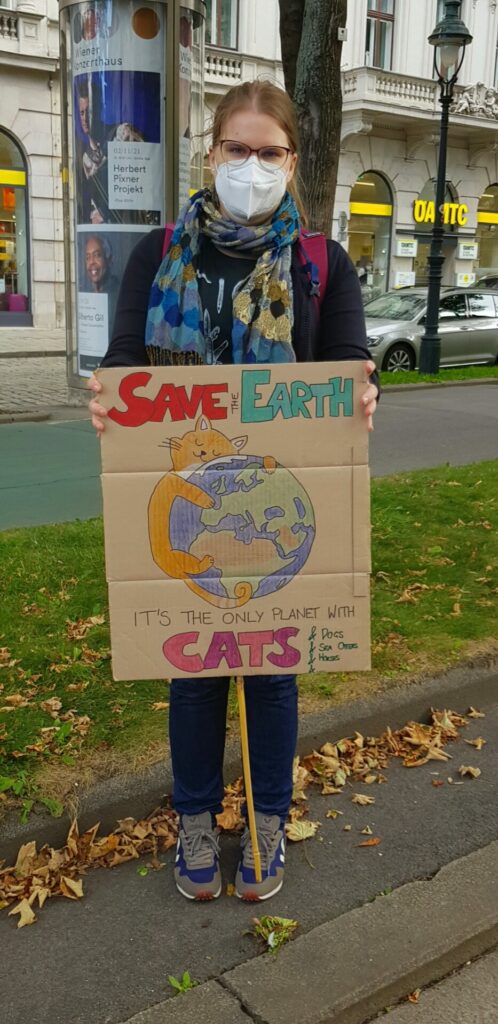 Wiener
Konzerthaus
02/11/21
Herbert
Pixner
Projekt
Gilberto Gil
ÖAMTC
SAVE THE EARTH
IT'S THE ONLY PLANET WITH
CATS
& DOGS
& SEA OTTERS
& HORSES
&